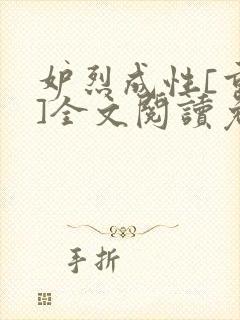 妒烈成性[重
]全文閱讀
手折